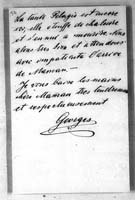 La tante Pélagie est encore
ici, elle étouffe de chaleur
et s'ennuie à mourir. Nous
allons très bien et attendons
avec impatience l'arrivée
de Maman.
Je vous baise les mains
à Maman très tendrement
et respectueusement
Georges